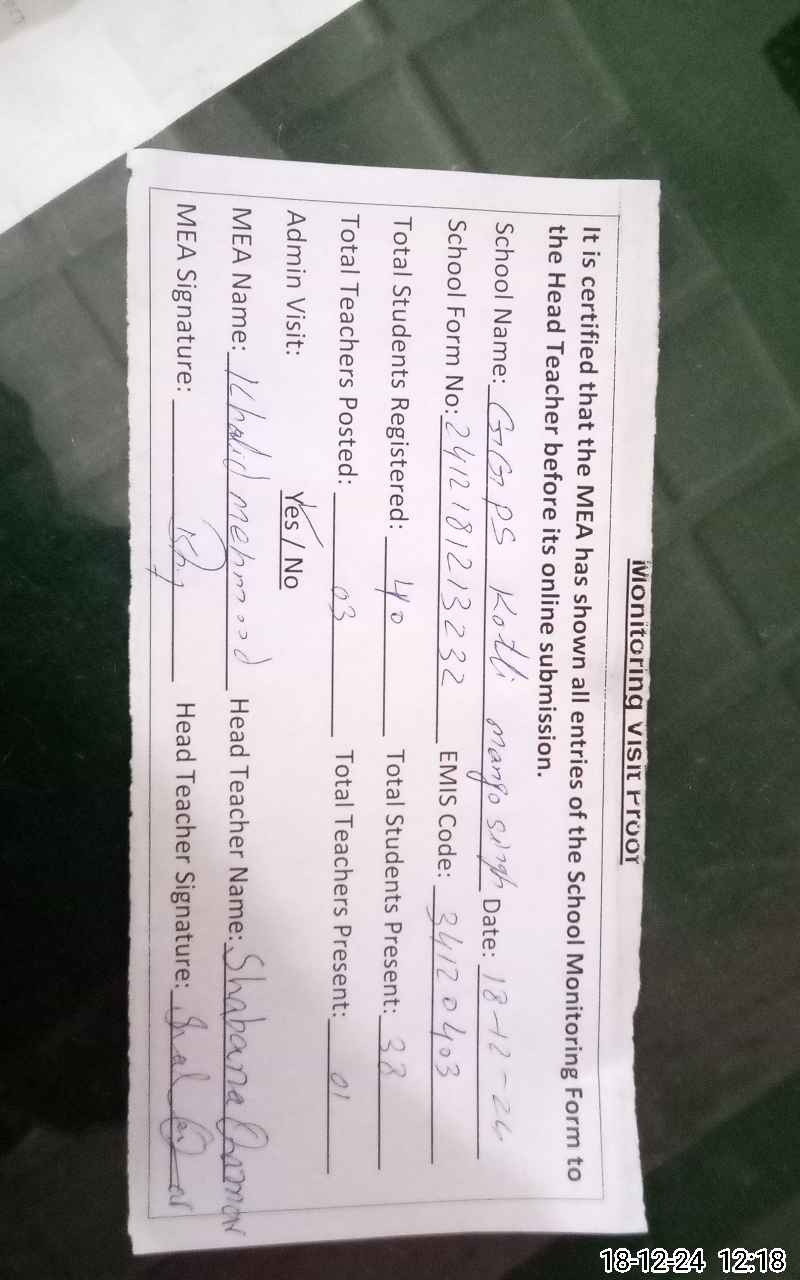 Monitoring Visit Proof
It is certified that the MEA has shown all entries of the School Monitoring Form to
the Head Teacher before its online submission.
School Name: GGPS Kotli mango singh Date: 18-12-24
School Form No: 241218121 3232 EMIS Code: 34120403
Total Students Registered: 40 Total Students Present: 38
Total Teachers Posted: 03 Total Teachers Present: 01
Admin Visit: Yes / No
MEA Name: Khalid mehmood Head Teacher Name: Shabana
MEA Signature: Head Teacher Signature:
18-12-24 12:18